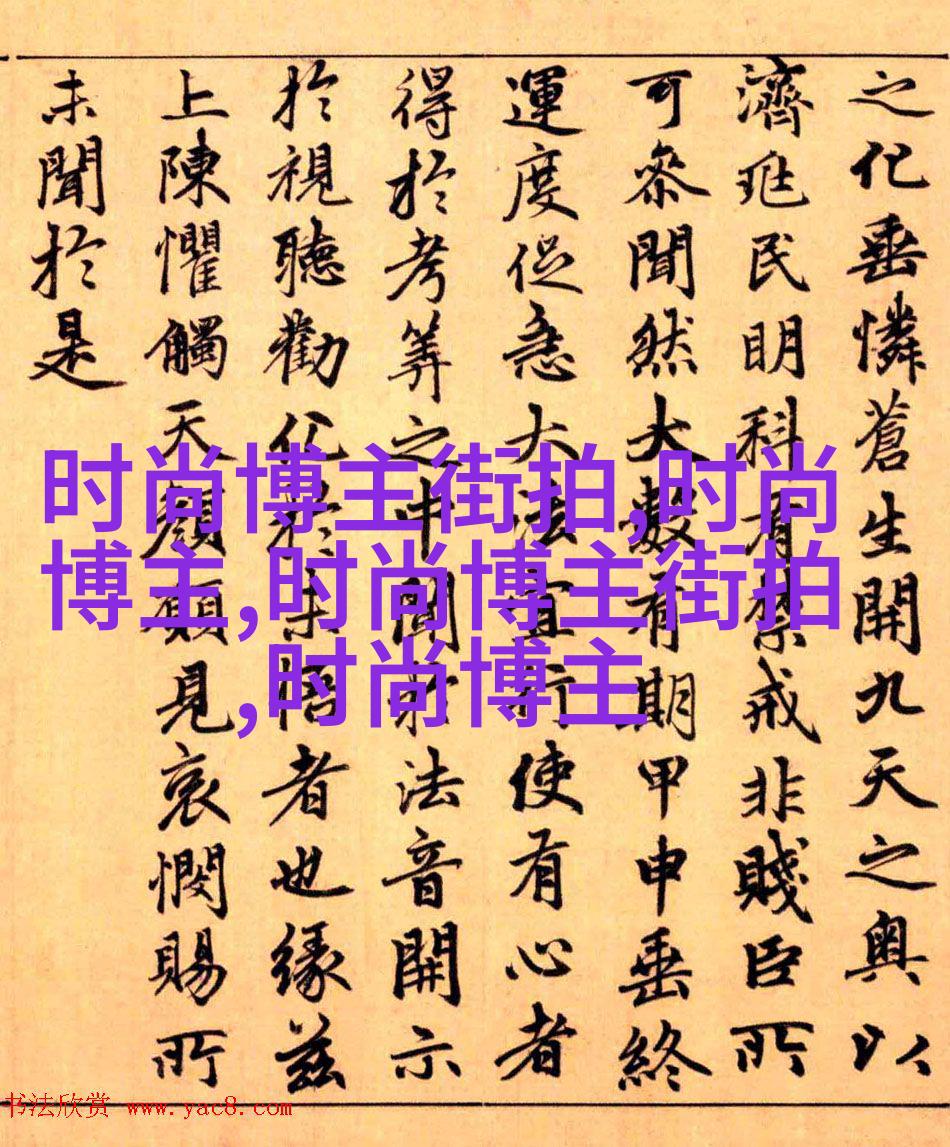 之化垂憐蒼生開九天之奧以
濟兆民明科有禁戒非賤臣所
可叅聞然大數有期甲申垂終
運度促急大法宜行使有心者
得於考筭之中聞於法音開示
於視聽勸化於未悟者也緣茲
上陳懼觸天顏願見哀憫賜所
未聞於是
时尚博主街拍,时尚
博主,时尚博主街拍
,时尚博主
书法欣赏 www.yac8.com